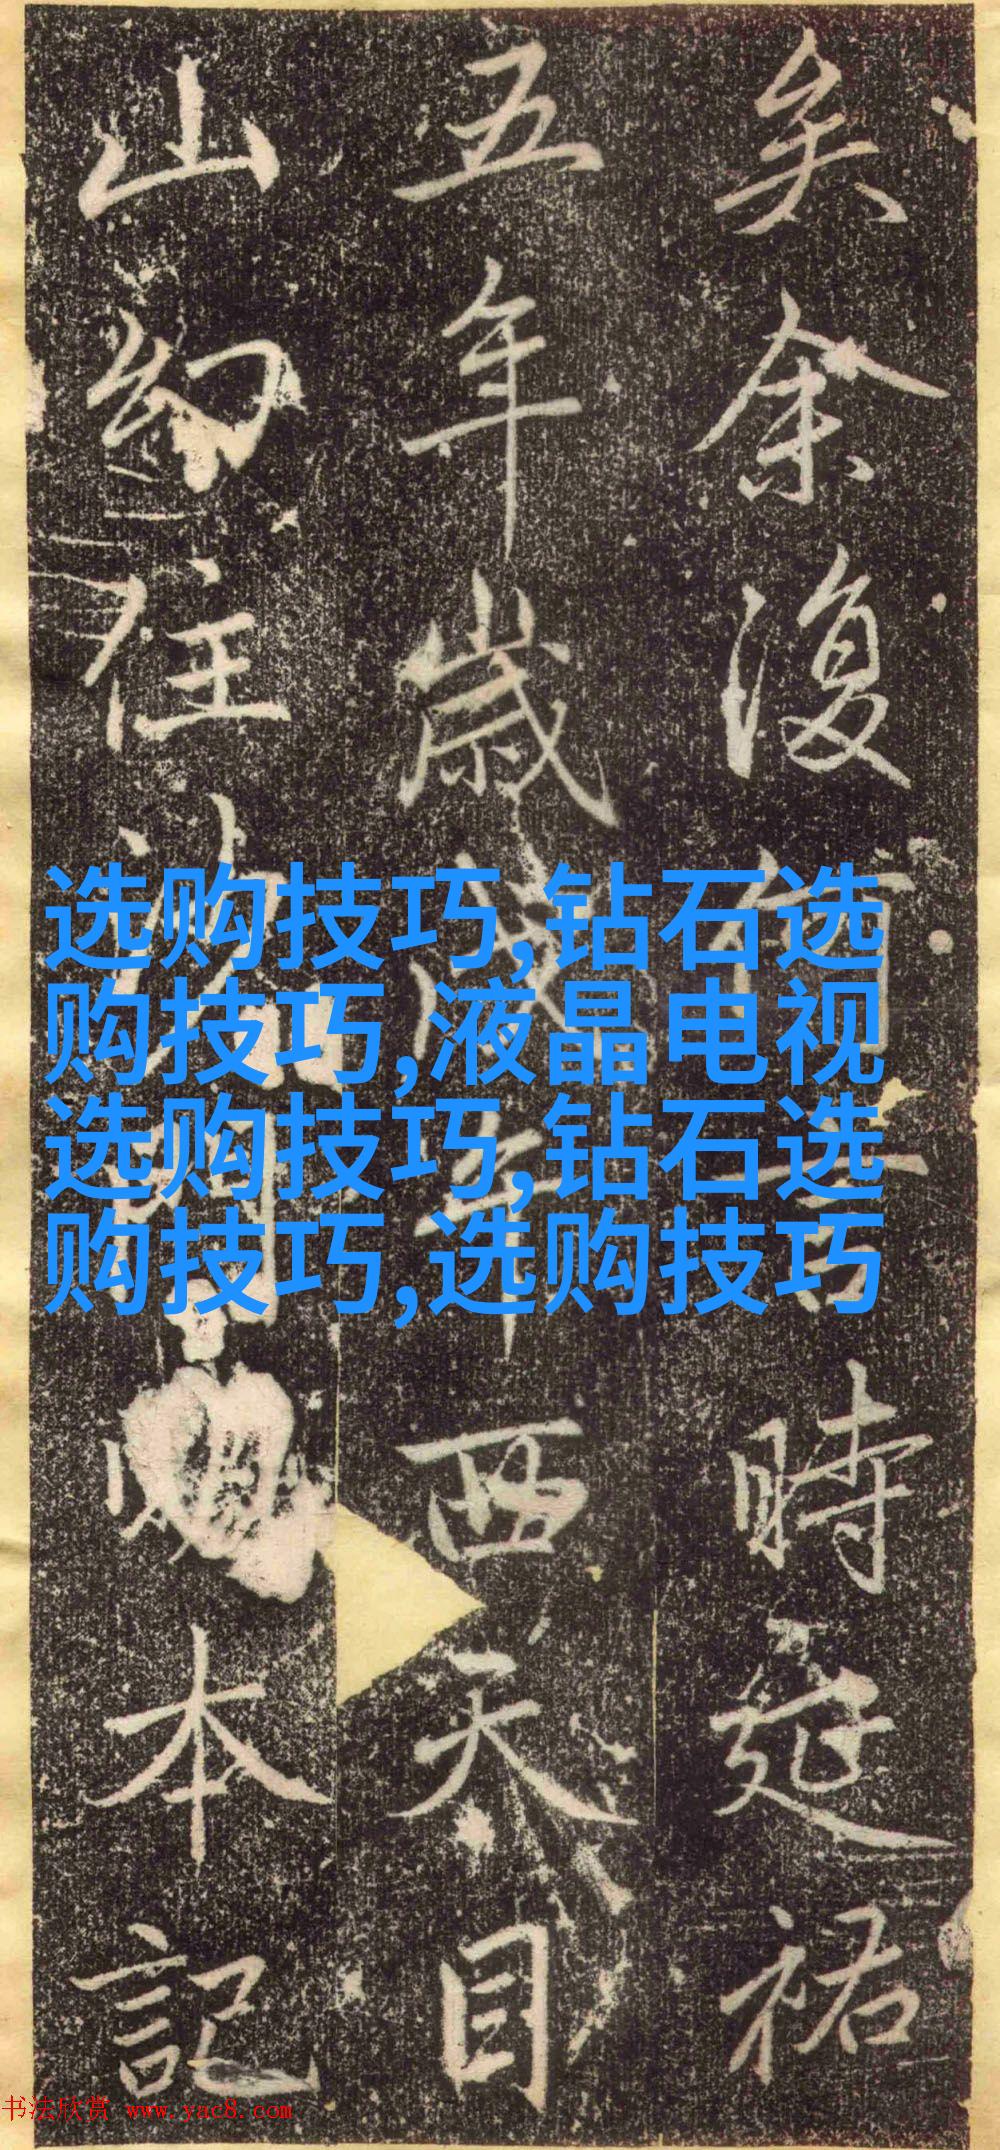 矣余復何言時延祐
五年歲戊午西天目
山幻住沙門明本記
选购技巧,钻石选
购技巧,液晶电视
选购技巧,钻石选
购技巧,选购技巧
书法欣赏 www.yac8.com